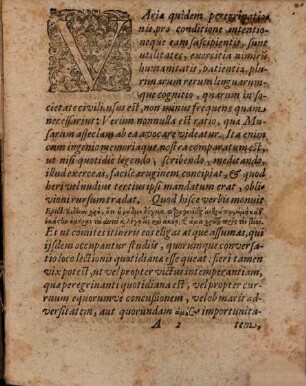 VAria quidem peregrinatio
nis, pro conditione intentio-
neque eam suscipientis, sunt
utilitates, exercitia nimirū
humanitatis, patientia, plu-
rimarum rerum linguarum-
que cognitio, quarum in so-
cietate civili usus est, non minus frequens quam
necessarius: Verum nonnulla est ratio, qua Mu-
sarum asseclam ab ea avocare videatur. Ita enim
cum ingenio memoriaque nostra comparatum est,
ut nisi quotidie legendo, scribendo, meditando,
illud exerceas, facile æruginem concipiat, & quod
heri vel nudius tertius ipsi mandatum erat, obli-
vioni rursum tradat. Quod hisce verbis monuit
Et ut comites itineris eos eligas atque assumas, qui
iisdem occupantur studiis, quorumque conversa-
tio loco lectionis quotidiana esse queat: fieri tamen
vix potest, ut vel propter victus intemperantiam,
quæ peregrinanti quotidiana est, vel propter cur-
ruum equorumve concussionem, vel ob maris ad-
versitatem, aut quorundam importunita-
A 2 tem,